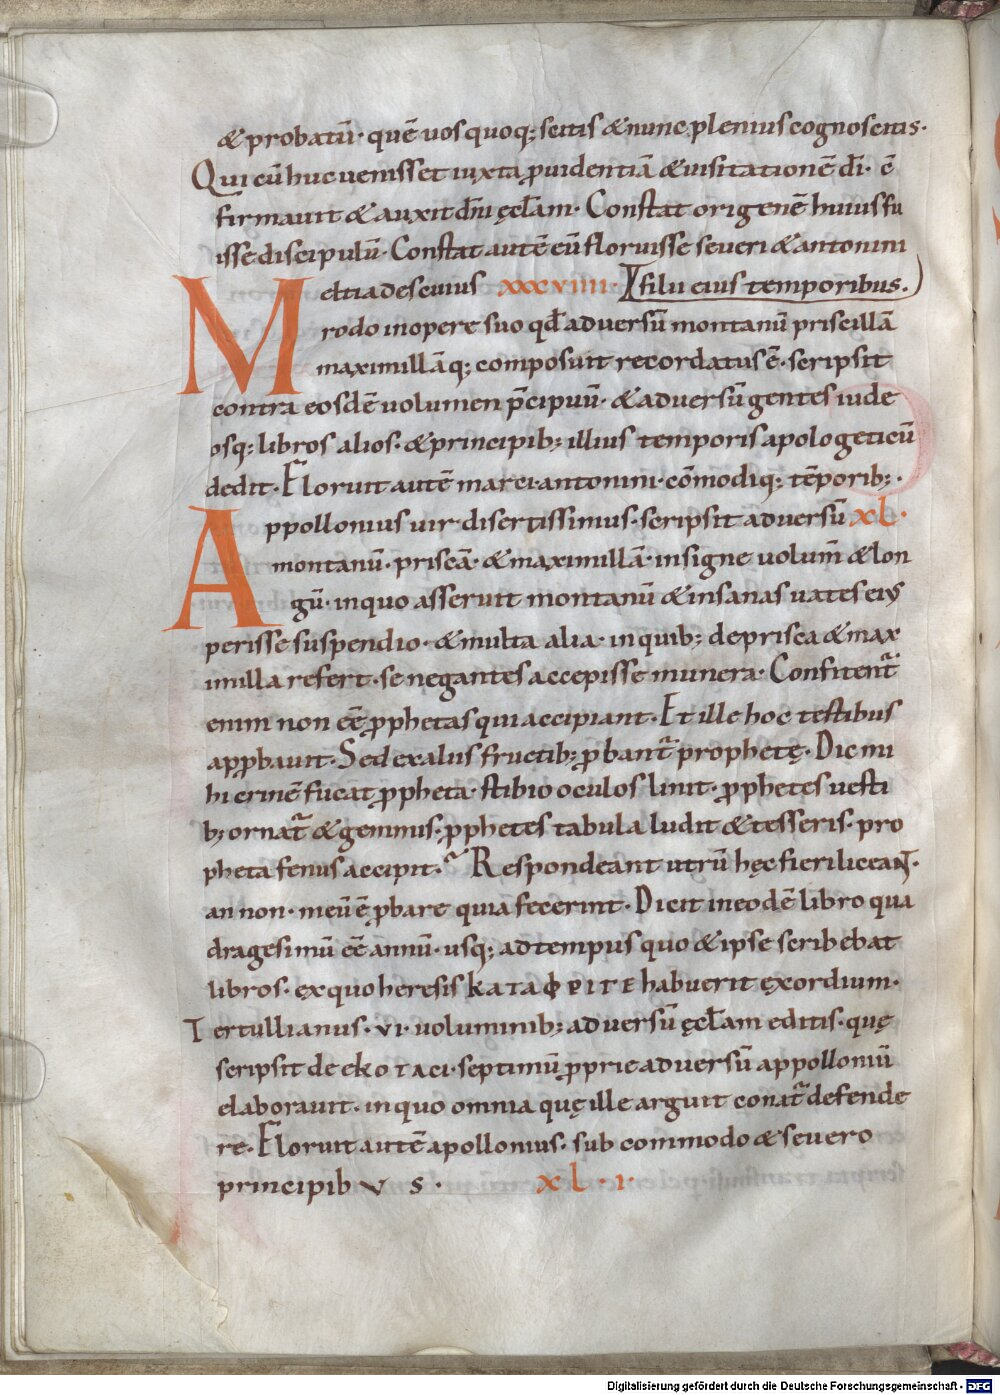 & probatū· quē uos quoq; scitis & nunc plenius cognoscetis·
Qui cū huc uenisset iuxta puidentiā & uisitationē dī· cͦ
firmauit & auxit dn̄i ęcl̄am· Constat origenē huius fu
isse discipulū· Constat autē eū floruisse seueri & antonini
Meltiades cuius xxxviiii· filii eius temporibus.
rodo in opere suo qđ aduersū montanū priscillā
maximillāq; composuit recordatus ē· scripsit
contra eosdē uolumen p̄cipuū· & aduersū gentes iude
osq; libros alios· & principib; illius temporis apologeticū
dedit· Floruit autē marci·antonini·cōmodiq; tēporib;·
Appollonius uir disertissimus· scripsit aduersū xl·
montanū· priscā· & maximillā· insigne uolum̄ & lon
gū· in quo asserit montanū & insanas uates eiꝰ
perisse suspendio· & multa alia· in quib; de prisca & max
imilla refert· se negantes accepisse munera· Confitent̄
enim non eē pphetas qui accipiant· Et ille hoc testibus
appbauit· Sed ex aliis fructib; pbant̄ prophetę· Dic mi
hi crinē fucat ppheta· stibio oculos linit· pphetes uesti
b; ornat̄ & gemmis· pphetes tabula ludit & tesseris· pro
pheta fenus accipit· Respondeant utrū hęc fieri liceaNT·
an non· meū ē pbare quia fecerint· Dicit in eodē libro qua
dragesimū eē annū· usq; ad tempus quo & ipse scribebat
libros· ex quo heresis KATAΦPITE habuerit exordium·
Tertullianus· VI· uoluminib; aduersū ęcl̄am editis· quę
scripsit de ekοταci· septimū pprie aduersū appolloniū
elaborauit· in quo omnia quę ille arguit conat̄ defende
re· Floruit autē apollonius· sub commodo & seuero
principibVS· xl·i·
Digitalisierung gefördert durch die Deutsche Forschungsgemeinschaft - DFG